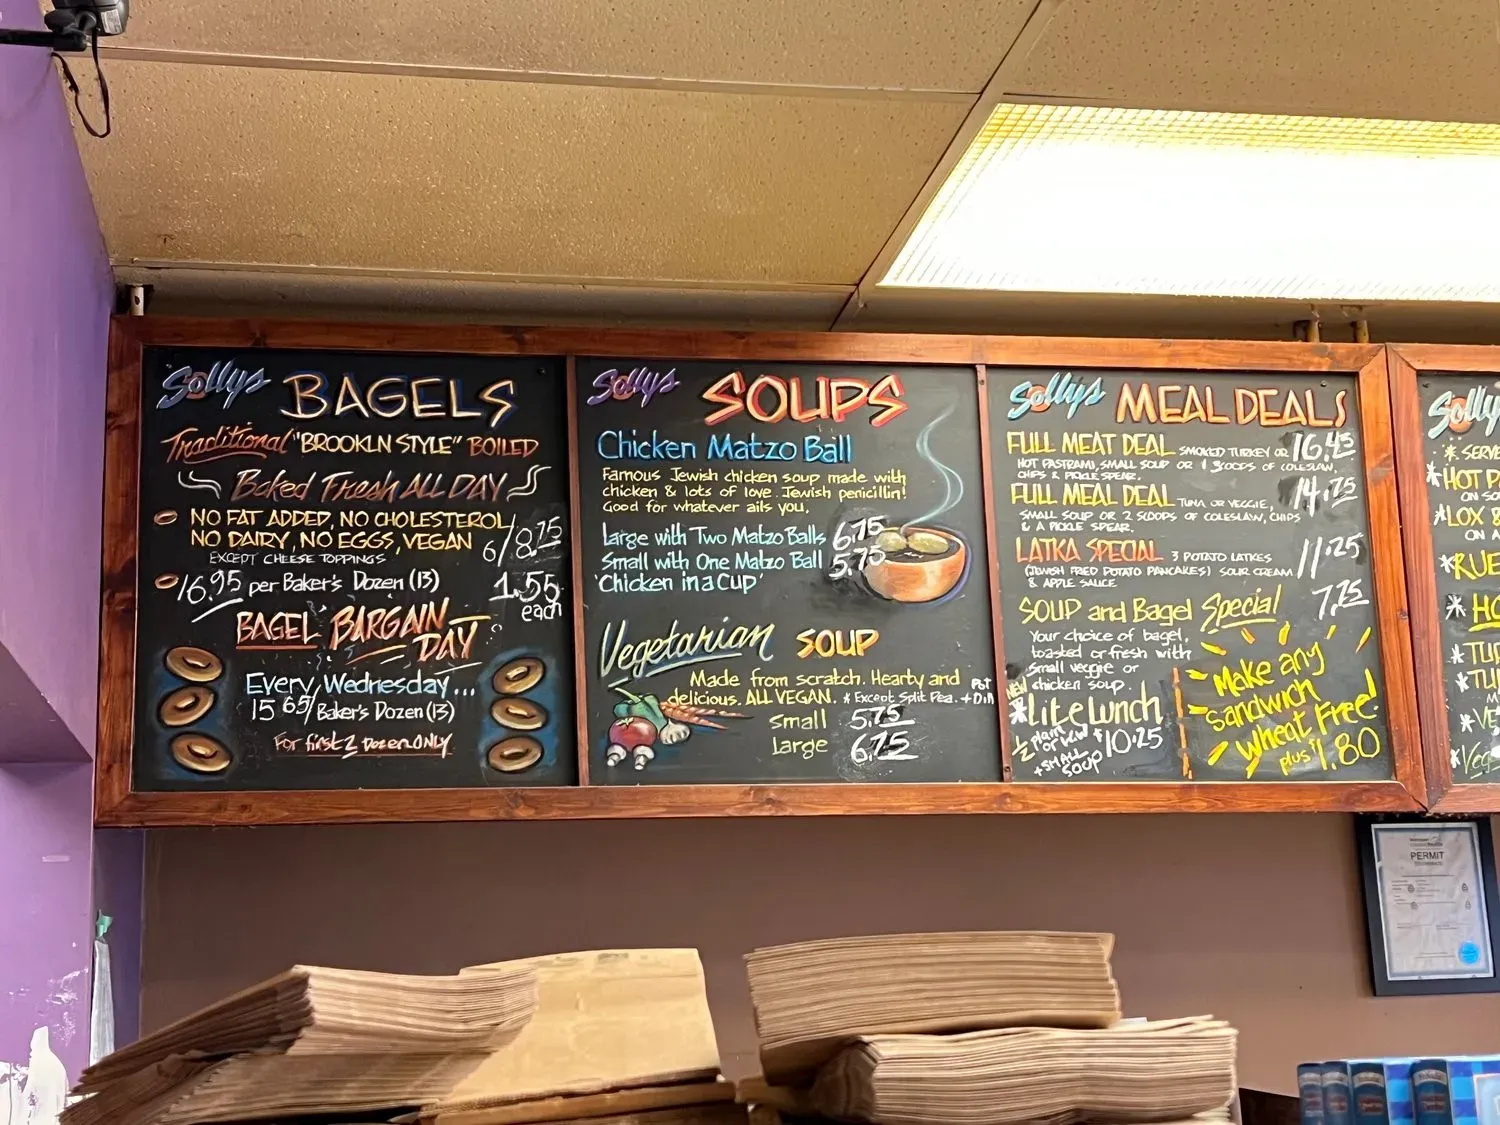 Sollys BAGELS
Traditional "BROOKLN STYLE" BOILED
Baked Fresh ALL DAY
NO FAT ADDED, NO CHOLESTEROL
NO DAIRY, NO EGGS, VEGAN 6/8.75
EXCEPT CHEESE TOPPINGS
16.95 per Baker's Dozen (13) 1.55
each
BAGEL BARGAIN
DAY
Every Wednesday...
15.65/Baker's Dozen (13)
For first 2 Dozen ONLY
Sollys SOUPS
Chicken Matzo Ball
Famous Jewish chicken soup made with
chicken & lots of love. Jewish penicillin!
Good for whatever ails you.
Large with Two Matzo Balls 6.75
Small with One Matzo Ball 5.75
'Chicken in a Cup'
Vegetarian SOUP
Made from scratch. Hearty and
delicious. ALL VEGAN. * Except Split Pea.
Small 5.75
Large 6.75
Sollys MEAL DEALS
FULL MEAT DEAL SMOKED TURKEY OR 16.45
HOT PASTRAMI, SMALL SOUP OR SCOOPS OF COLESLAW,
CHIPS & PICKLE SPEAR.
FULL MEAL DEAL TUNA OR VEGGIE, 14.75
SMALL SOUP OR 2 SCOOPS OF COLESLAW, CHIPS
& A PICKLE SPEAR.
LATKA SPECIAL 3 POTATO LATKES 11.25
(JEWISH FRIED POTATO PANCAKES) SOUR CREAM
& APPLE SAUCE
SOUP and Bagel Special 7.75
Your choice of bagel,
toasted or fresh with
small veggie or
chicken soup.
NEW
*Lite Lunch
1/2 plain
+ SMALL
SOUP $10.25
Make any
Sandwich
Wheat Free!
plus $1.80
Sollys
* SERVE
*HOT P
ON SO
*LOX &
ON A
*RUE
*HO
*TU
*TU
*VE
*Veg
PERMIT